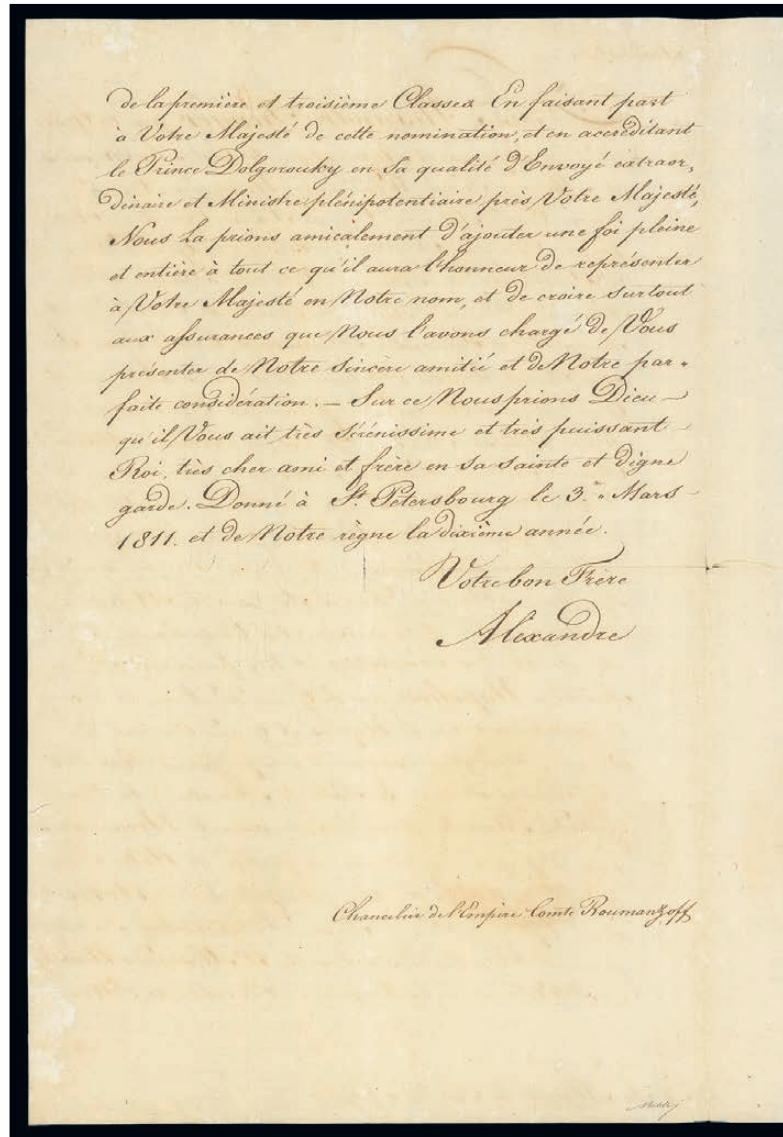 de la première et troisième Classes. En faisant part
à Votre Majesté de cette nomination, et en accréditant
le Prince Dolgorouky en Sa qualité d'Envoyé extraor,
dinaire et Ministre plénipotentiaire près Votre Majesté,
Nous La prions amicalement d'ajouter une foi pleine
et entière à tout ce qu'il aura l'honneur de représenter
à Votre Majesté en Notre nom, et de croire surtout
aux assurances que Nous l'avons chargé de Vous
présenter de Notre sincère amitié et de Notre par=
faite considération. — Sur ce Nous prions Dieu —
qu'il Vous ait très Sérénissime et très puissant —
Roi, très cher ami et frère en Sa sainte et digne
garde. Donné à St. Petersbourg le 3. Mars —
1811. et de Notre règne la dixième année.
Votre bon Frère
Alexandre
Chancelier de l'Empire Comte Roumanzoff